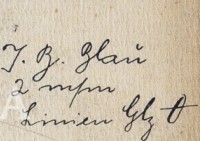 J. B. Blaŭ
2 m/m
Linien Glz